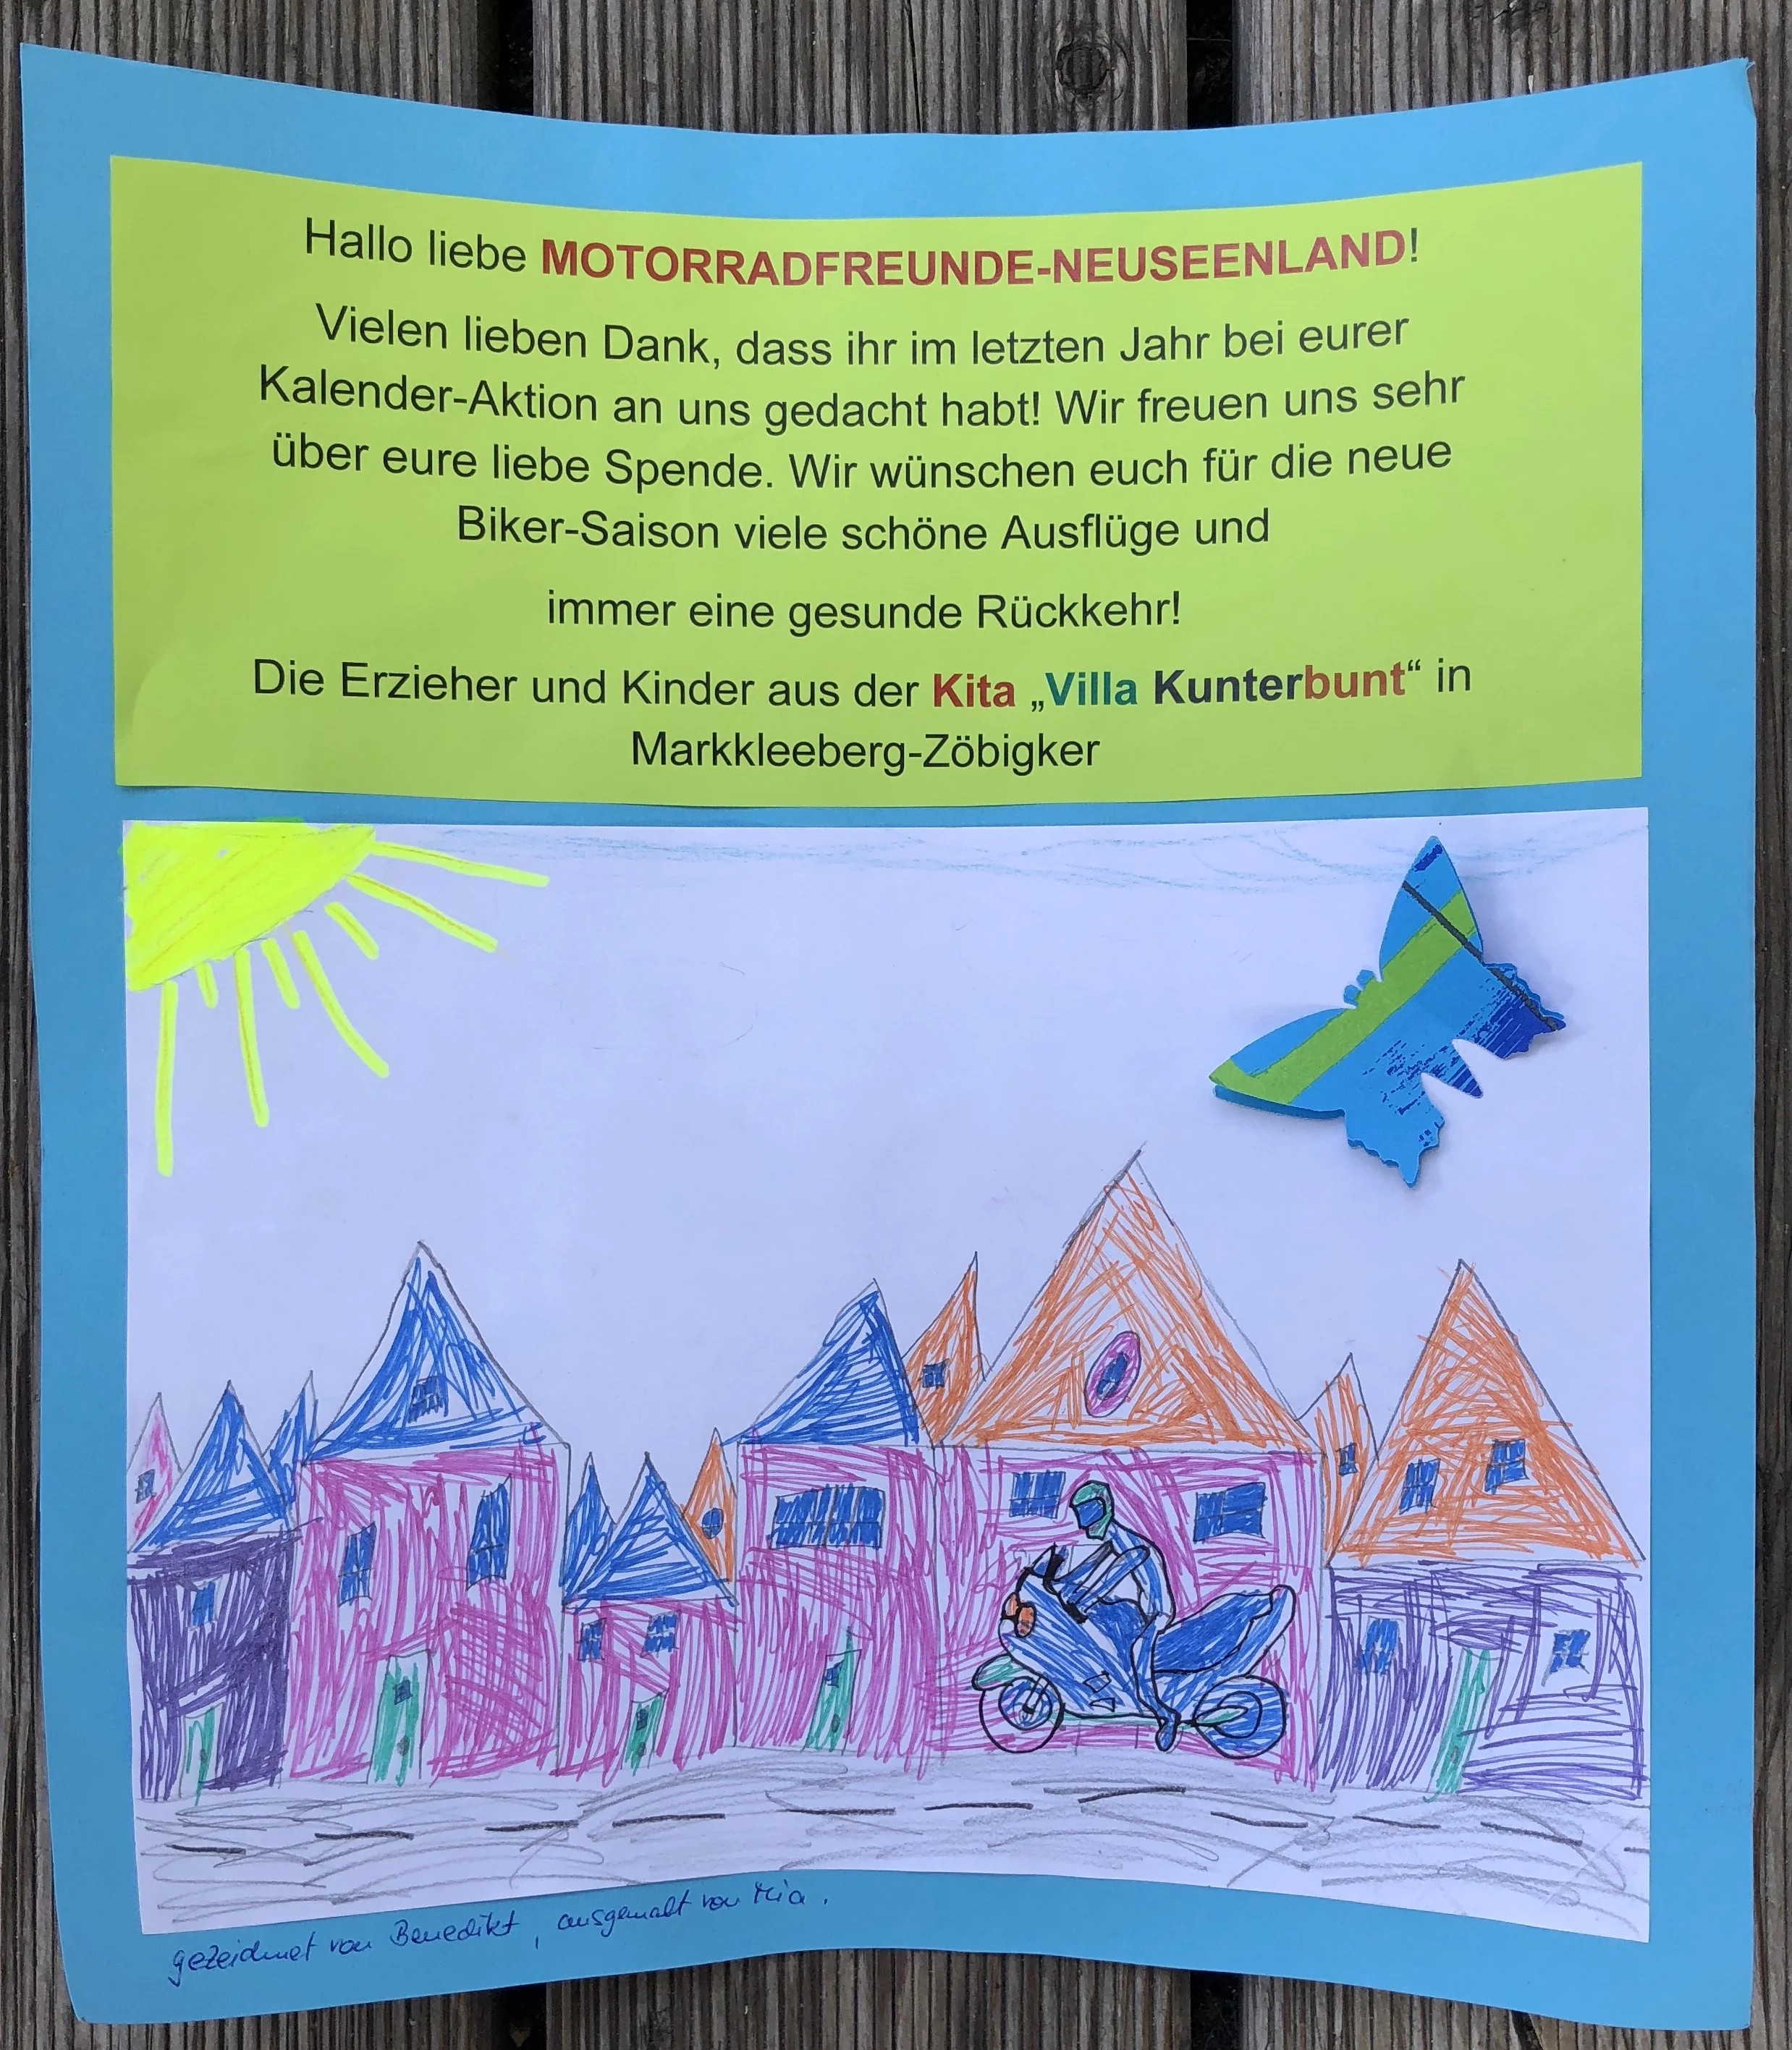 Hallo liebe MOTORRADFREUNDE-NEUSEENLAND!
Vielen lieben Dank, dass ihr im letzten Jahr bei eurer
Kalender-Aktion an uns gedacht habt! Wir freuen uns sehr
über eure liebe Spende. Wir wünschen euch für die neue
Biker-Saison viele schöne Ausflüge und
immer eine gesunde Rückkehr!
Die Erzieher und Kinder aus der Kita „Villa Kunterbunt“ in
Markkleeberg-Zöbigker
gezeichnet von Benedikt, ausgemalt von Mia.